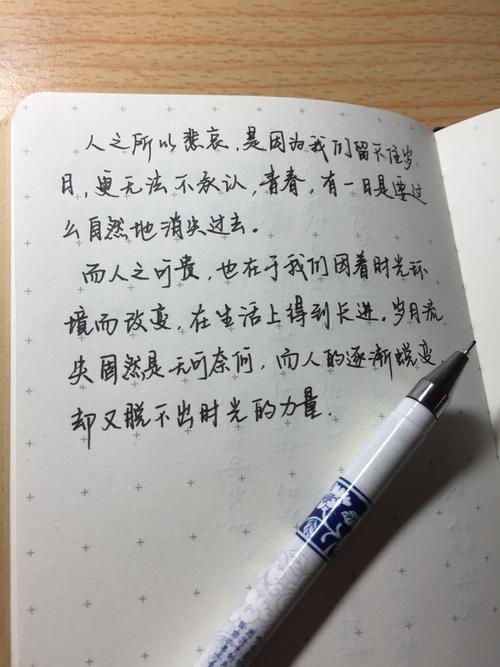 人之所以悲哀,是因为我们留不住岁
月,更无法不承认,青春,有一日是要这
么自然地消失过去。
而人之可贵,也在于我们因着时光环
境而改变,在生活上得到长进。岁月流
失固然是无可奈何,而人的逐渐蜕变,
却又脱不出时光的力量.